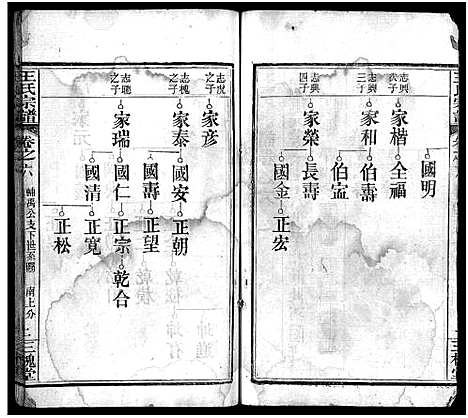 國明
志興
家楷
全福
志興
三子
家和
伯壽
伯㝉
志興
四子
家榮
長壽
國金
正宏
志成
之子
家彦
志槐
之子
家泰
國安
正朝
國壽
正望
志聰
之子
家瑞
國仁
正宗
乾合
國清
正寬
正松
王氏宗譜
卷之六
輔禹公支下世系圖
南上分
三槐堂